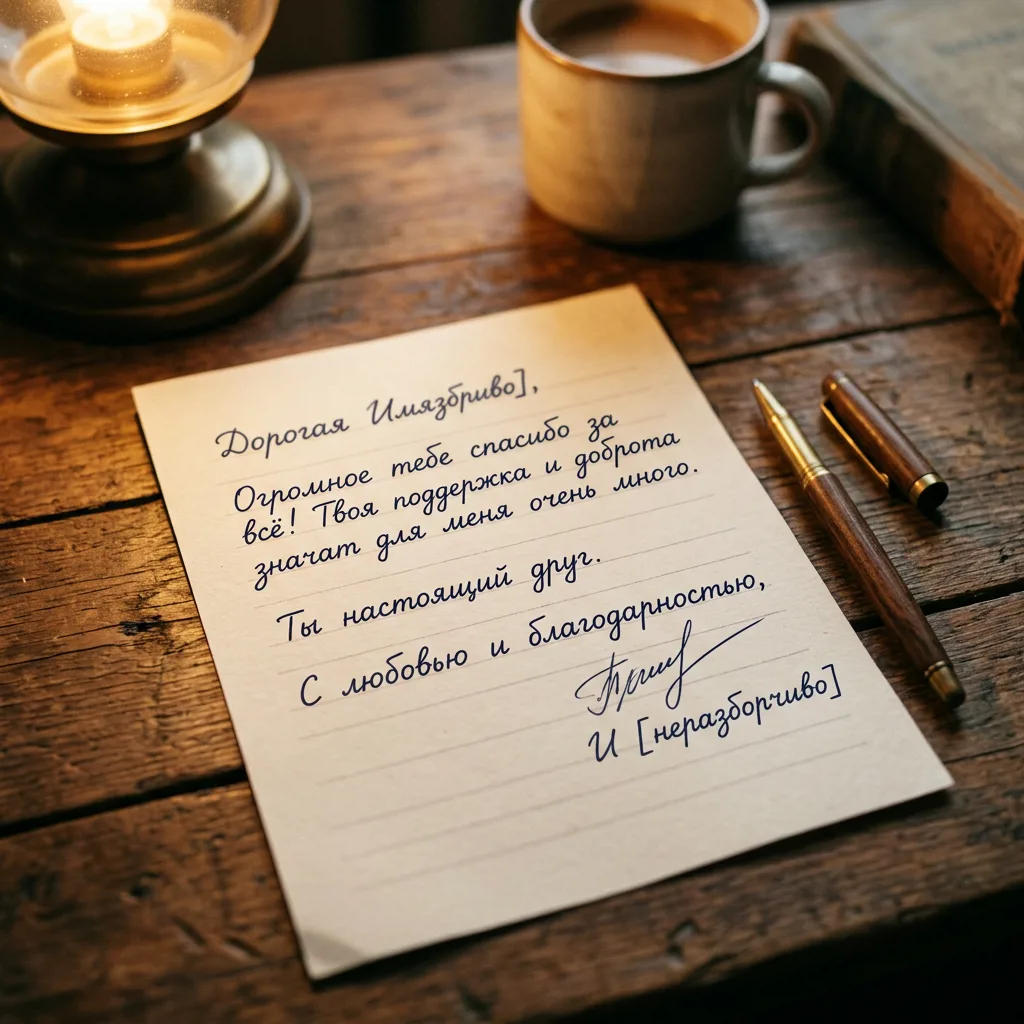 Дорогая Имязбриво],
Огромное тебе спасибо за
всё! Твоя поддержка и доброта
значат для меня очень много.
Ты настоящий друг.
С любовью и благодарностью,
И [неразборчиво]